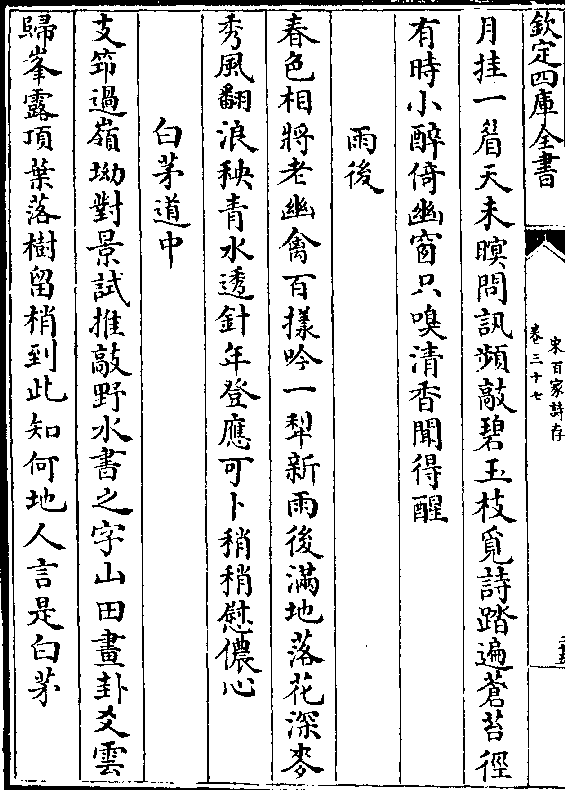 欽定四庫全書
宋百家詩存
卷三十七
月挂一眉天未暝問訊頻敲碧玉枝覓詩踏遍蒼苔徑
有時小醉倚幽窗只嗅清香聞得醒
雨後
春色相將老幽禽百㨾吟一犁新雨後滿地落花深麥
秀風翻浪秧青水透針年登應可卜稍稍慰儂心
白茅道中
支笻過嶺坳對景試推敲野水書之字山田畫卦爻雲
歸峯露頂葉落樹留梢到此知何地人言是白茅